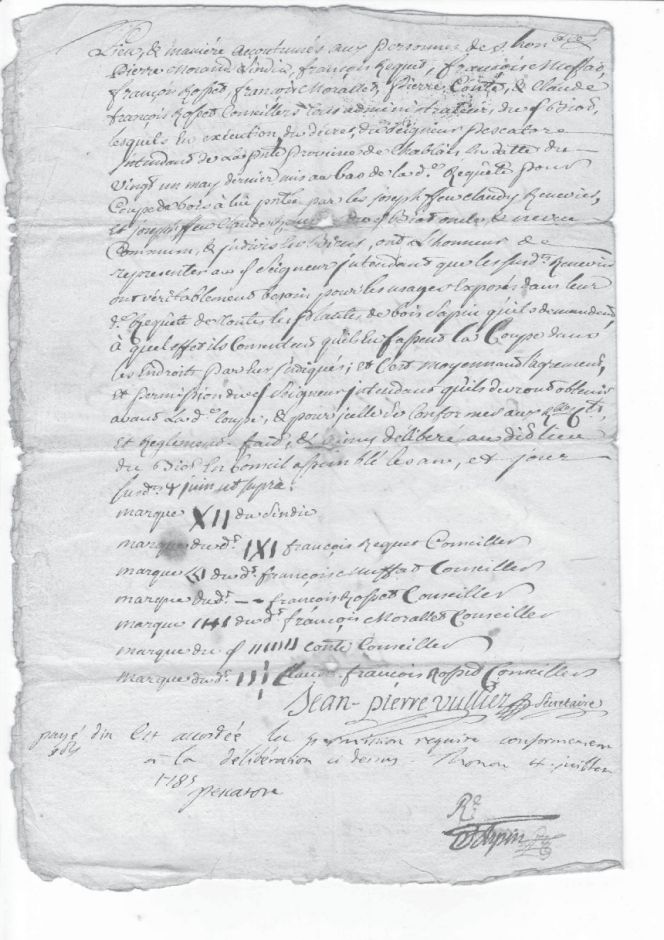 Lieu, & maniére acoutumés aux personnes de
Pierre Morand Sindic, françois Requet, françois Muffat,
françois Rosset, françois Morallet, Pierre Conte, & Claude
françois Rosset Conseillers tous administrateurs, du
lesquels En execution du decret, du Seigneur Pescatore
intendant de la pnte Province de Chablais, en datte du
vingt un may dernier mis au bas de la de Requête pour
Coupe de bois a lui pntée par les joseph feu claude Renevier,
Et joseph feu Claude
Commun, & judivis les dives, ont l'honneur de
representer au Seigneur jntendant que les Renevier
ont véritablement besoin pour les usages Exposés dans leur
de Requête de toutes les plantes de bois Sapin qu'ils demandent,
à quel effet ils Consentent qu'ils En fassent la Coupe dans
les Endroit Par Eux judiqués; et C'est moyennant l'agrement,
Et Permission du Seigneur jntendant qu'ils devront obtenir
avant la de Coupe, & pour jcelle se conformer aux
Et Reglement fait, & ainsi deliberé au dit lieu
du En Conseil assemblé les an, et jour
susds & juin ut supra.
marque XII du Sindic
marque du dt IXI françois Requet Conseiller
marque du dt françois Muffat Conseiller
marque du dt -- françois Rosset Conseiller
marque du dt françois Morallet Conseiller
marque du Conte Conseiller
Marque du dt III Claude françois Rosset Conseiller
Jean-pierre vullier Secretaire
payé Est accordée la permission requise conformement
à la délibération ci dessus. Thonon 4 juillet
178
Pescatore